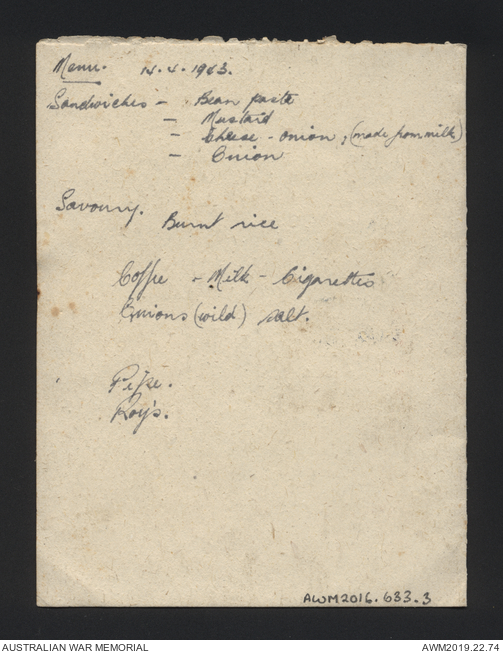 Menu. 14.4.1943.
Sandwiches - Bean paste
- Mustard
- Cheese - onion, (made from milk)
- Onion
Savoury.
Burnt rice
Coffee - Milk - Cigarettes
Onions (wild) salt.
Pipe.
Roy's.
AWM2016.633.3
AUSTRALIAN WAR MEMORIAL AWM2019.22.74